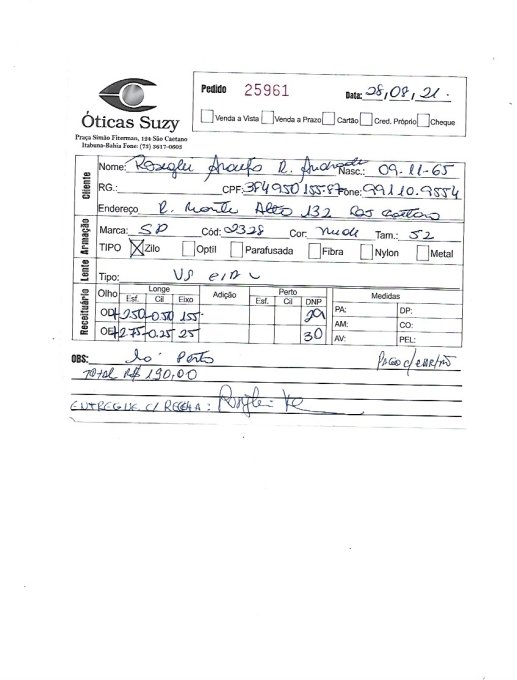 Óticas Suzy
Praça Simão Fiterman, 124 São Caetano
Itabuna-Bahia Fone: (73) 3617-0605
Pedido 25961 Data: 28,08,21.
Venda a Vista Venda a Prazo Cartão Cred. Próprio Cheque
Cliente
Nome: Araujo R. Andrade Nasc.: 09-11-65
RG.: CPF: 384950155-87 Fone: 99110.9554
Endereço R. Monte Alto 132
Armação
Marca: SP Cód: 2328 Cor: nude Tam.: 52
TIPO Zilo Optil Parafusada Fibra Nylon Metal
Lente
Tipo: VS
Receituário
Olho Longe Adição Perto Medidas
Esf. Cil Eixo Esf. Cil DNP
OD +2.50 -0.50 155 29 PA: DP:
AM: CO:
OE +2.75 -0.25 25 30 AV: PEL:
OBS: Só Perto PAGO C/ CARTÃO
TOTAL R$ 190,00
ENTREGUE C/ RECEITA: